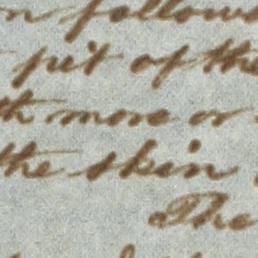 n follow
pit of the
th more or
the skin
The